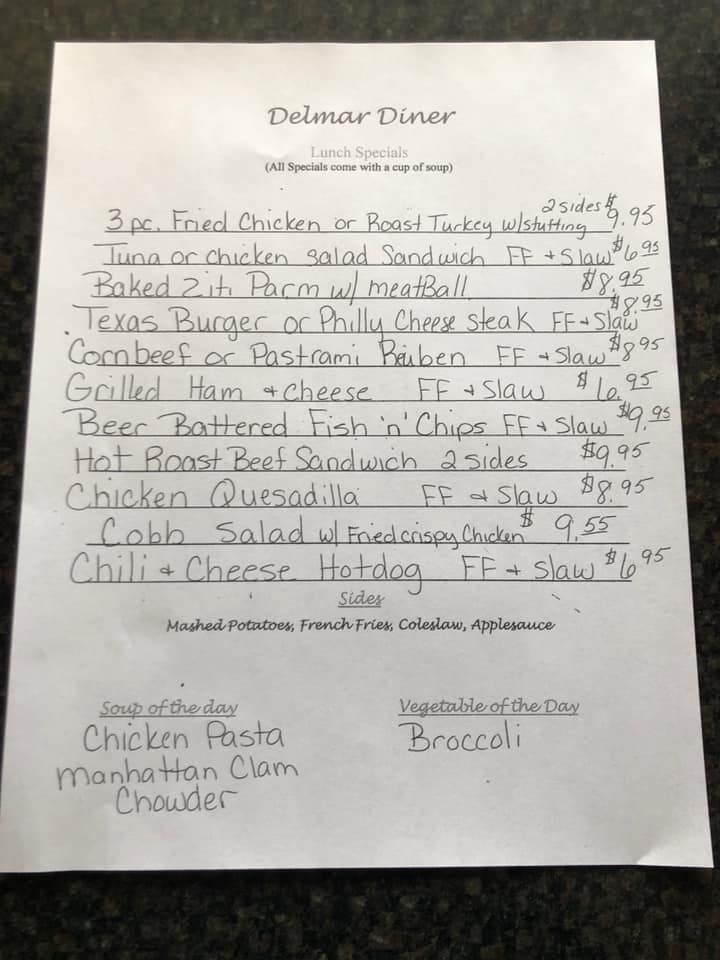 Delmar Diner
Lunch Specials
(All Specials come with a cup of soup)
3 pc. Fried Chicken or Roast Turkey w/stuffing 2 sides $9.95
Tuna or chicken salad Sandwich FF + Slaw $6.95
Baked Ziti Parm w/ meatBall $8.95
Texas Burger or Philly Cheese steak FF + Slaw $8.95
Cornbeef or Pastrami Reuben FF + Slaw $8.95
Grilled Ham + Cheese FF + Slaw $6.95
Beer Battered Fish 'n' Chips FF + Slaw $9.95
Hot Roast Beef Sandwich 2 sides $9.95
Chicken Quesadilla FF + Slaw $8.95
Cobb Salad w/ Fried crispy Chicken $9.55
Chili + Cheese Hotdog FF + Slaw $6.95
Sides
Mashed Potatoes, French Fries, Coleslaw, Applesauce
Soup of the day
Chicken Pasta
Manhattan Clam
Chowder
Vegetable of the Day
Broccoli